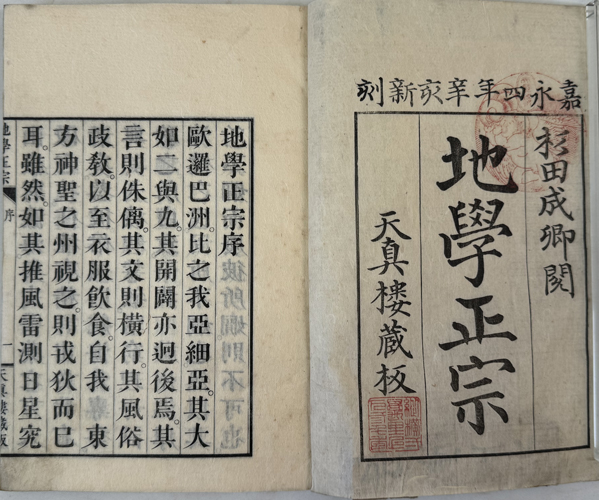 嘉永四年辛亥新刻
杉田成卿閲
地學正宗
天真樓蔵板
地學正宗序
歐邏巴洲。比之我亞細亞。其大
如二與九。其開闢亦迥後焉。其
言則侏𠌯。其文則橫行。其風俗
政敎。以至衣服飮食。自我東
方神聖之州視之。則戎狄而已
耳。雖然。如其推風雷測日星究
地學正宗
序
一
天真樓蔵板